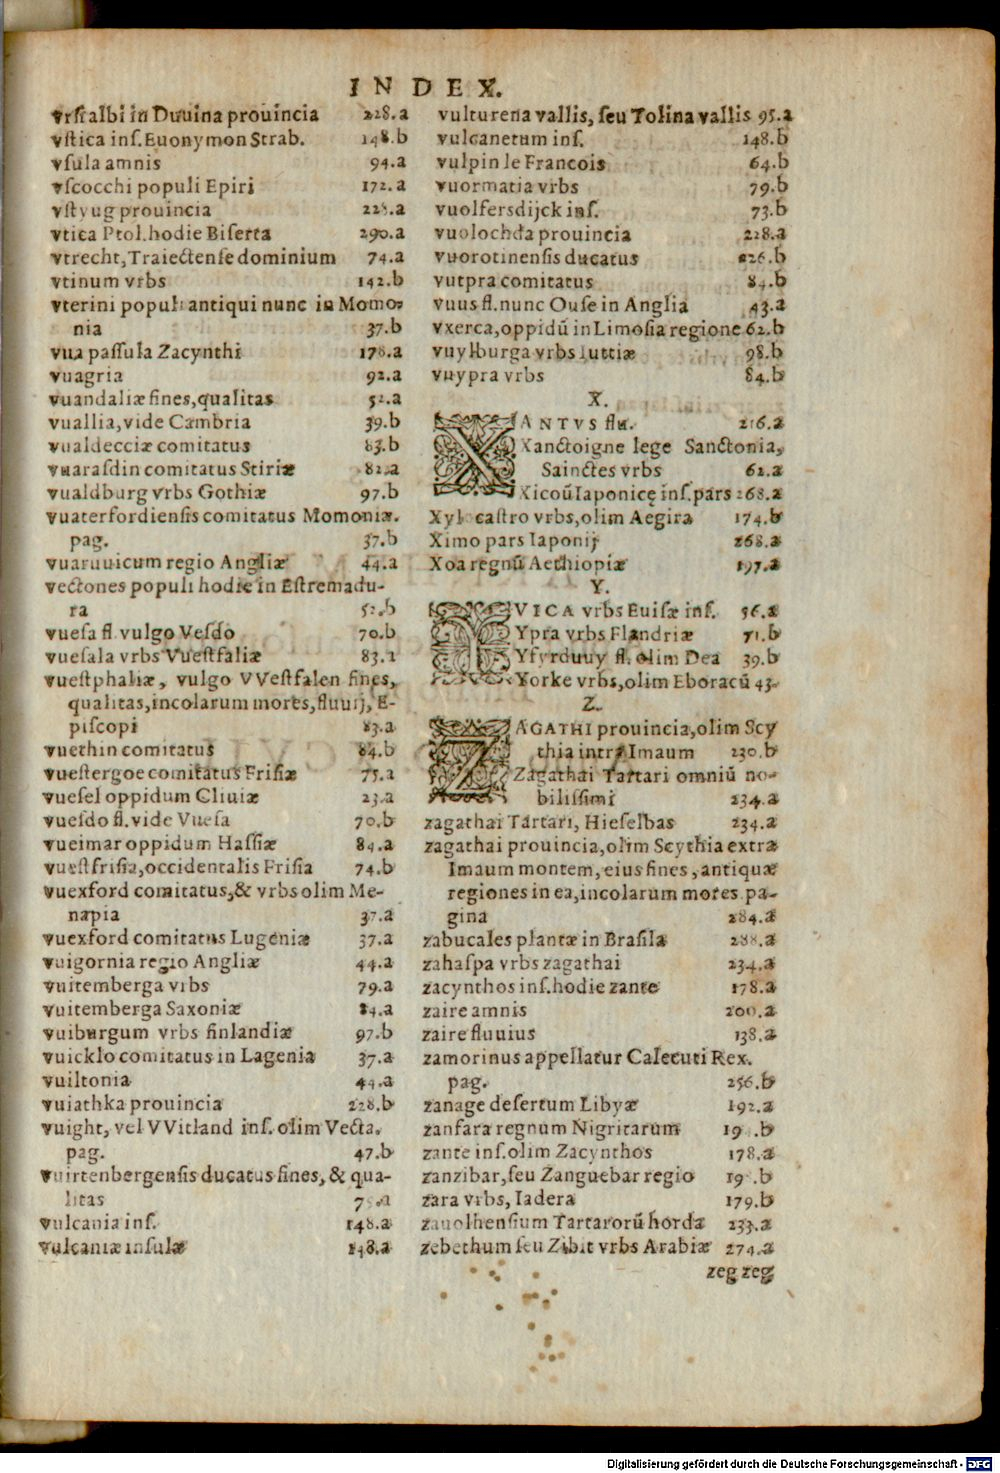 INDEX.
vrsi albi in Duuina prouincia 228.a
vstica ins. Euonymon Strab. 148.b
vsula amnis 94.a
vscocchi populi Epiri 172.a
vstyug prouincia 228.a
vtica Ptol. hodie Biserta 290.a
vtrecht, Traiectense dominium 74.a
vtinum vrbs 142.b
vterini populi antiqui nunc in Momo-
nia 37.b
vua passula Zacynthi 178.a
vuagria 92.a
vuandaliæ fines, qualitas 52.a
vuallia, vide Cambria 39.b
vualdecciæ comitatus 83.b
vuarasdin comitatus Stiriæ 82.a
vualdburg vrbs Gothiæ 97.b
vuaterfordiensis comitatus Momoniæ.
pag. 37.b
vuaruuicum regio Angliæ 44.a
vectones populi hodie in Estremadu-
ra 52.b
vuesa fl. vulgo Vesdo 70.b
vuesala vrbs Vuestfaliæ 83.a
vuestphaliæ, vulgo VVestfalen fines,
qualitas, incolarum mores, fluuij, E-
piscopi 83.a
vuethin comitatus 84.b
vuestergoe comitatus Frisiæ 75.a
vuesel oppidum Cliuiæ 23.a
vuesdo fl. vide Vuesa 70.b
vueimar oppidum Hassiæ 84.a
vuestfrisia, occidentalis Frisia 74.b
vuexford comitatus, & vrbs olim Me-
napia 37.a
vuexford comitatus Lugeniæ 37.a
vuigornia regio Angliæ 44.a
vuitemberga vrbs 79.a
vuitemberga Saxoniæ 84.a
vuiburgum vrbs finlandiæ 97.b
vuicklo comitatus in Lagenia 37.a
vuiltonia 44.a
vuiathka prouincia 228.b
vuight, vel VVitland ins. olim Vecta.
pag. 47.b
vuirtenbergensis ducatus fines, & qua-
litas
vulcania ins. 148.a
vulcaniæ insulæ 148.a
vulturena vallis, seu Tolina vallis 95.a
vulcanetum ins. 148.b
vulpin le Francois 64.b
vuormatia vrbs 79.b
vuolfersdijck ins. 73.b
vuolochda prouincia 228.a
vuorotinensis ducatus 226.b
vutpra comitatus 84.b
vuus fl. nunc Ouse in Anglia 43.a
vxerca, oppidũ in Limosia regione 62.b
vuylburga vrbs Iuttiæ 98.b
vuypra vrbs 84.b
X.
XANTVS flu. 216.a
Xanctoigne lege Sanctonia,
Sainctes vrbs 62.a
Xicoũ Iaponicę ins. pars 268.a
Xylocastro vrbs, olim Aegira 174.b
Ximo pars Iaponij 268.a
Xoa regnũ Aethiopiæ 197.a
Y.
YVICA vrbs Euisæ ins. 56.a
Ypra vrbs Flandriæ 71.b
Ysyrduuy fl. olim Dea 39.b
Yorke vrbs, olim Eboracũ 43.
Z.
ZAGATHI prouincia, olim Scy
thia intra Imaum 230.b
Zagathai Tartari omniũ no-
bilissimi 234.a
zagathai Tartari, Hieselbas 234.a
zagathai prouincia, olim Scythia extra
Imaum montem, eius fines, antiquæ
regiones in ea, incolarum mores. pa-
gina 284.a
zabucales plantæ in Brasila 288.a
zahaspa vrbs zagathai 234.a
zacynthos ins. hodie zante 178.a
zaire amnis 200.a
zaire fluuius 138.a
zamorinus appellatur Calecuti Rex.
pag. 256.b
zanage desertum Libyæ 192.a
zanfara regnum Nigritarum
zante ins. olim Zacynthos 178.a
zanzibar, seu Zanguebar regio
zara vrbs, Iadera 179.b
zauolhensium Tartarorũ horda 233.a
zebethum seu Zibit vrbs Arabiæ 274.a
zeg zeg
Digitalisierung gefördert durch die Deutsche Forschungsgemeinschaft - DFG